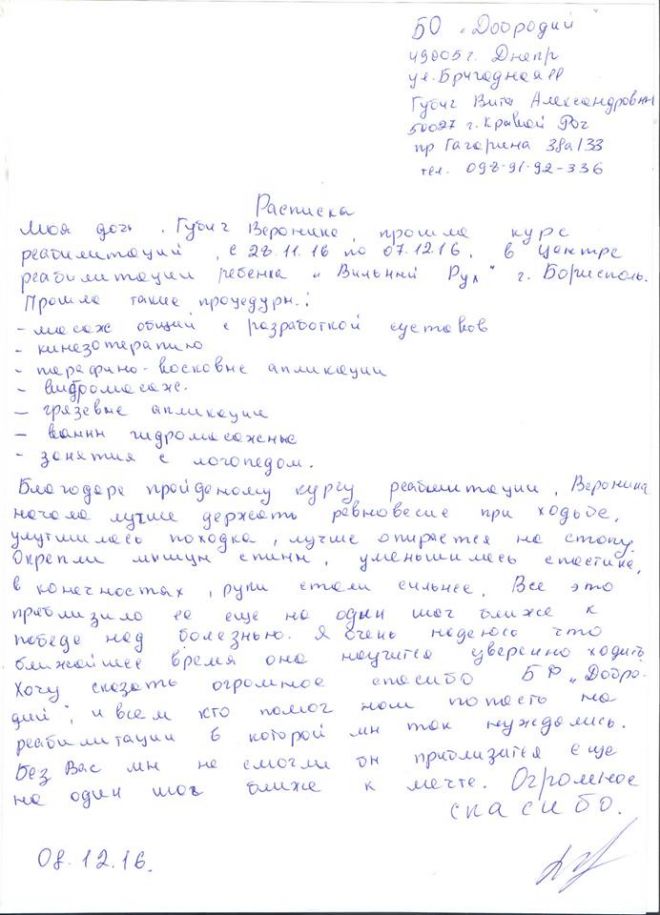 БО „Добродий
49005 г. Днепр
ул. Бригадная 11
Губич Вита Александровны
50027 г. Кривой Рог
пр Гагарина 38а/33
тел. 098-91-92-336
Расписка
Моя дочь, Губич Вероника, прошла курс
реабилитаций, с 28.11.16 по 07.12.16, в Центре
реабилитации ребенка „Вильний Рух" г. Борисполь.
Прошла такие процедуры:
- массаж общий с разработкой суставов
- кинезотерапию
- парафино-восковые апликации
- вибромасаж.
- грязевые апликации
- ванны гидромасажные
- занятия с логопедом.
Благодаря пройденому курсу реабилитации, Вероника
начала лучше держать равновесие при ходьбе,
улутшилась походка, лучше опирается на стопу.
Окрепли мышцы спины, уменьшилась спастика,
в конечностях, руки стали сильнее. Все это
приблизило ее еще на один шаг ближе к
победе над болезнью. Я очень надеюсь что
ближайшее время она научится уверенно ходить.
Хочу сказать огромное спасибо БФ „Добро-
дий", и всем кто помог нам попасть на
реабилитации в которой мы так нуждались.
Без Вас мы не смогли бы приблизится еще
на один шаг ближе к мечте. Огромное
спасибо.
08.12.16.